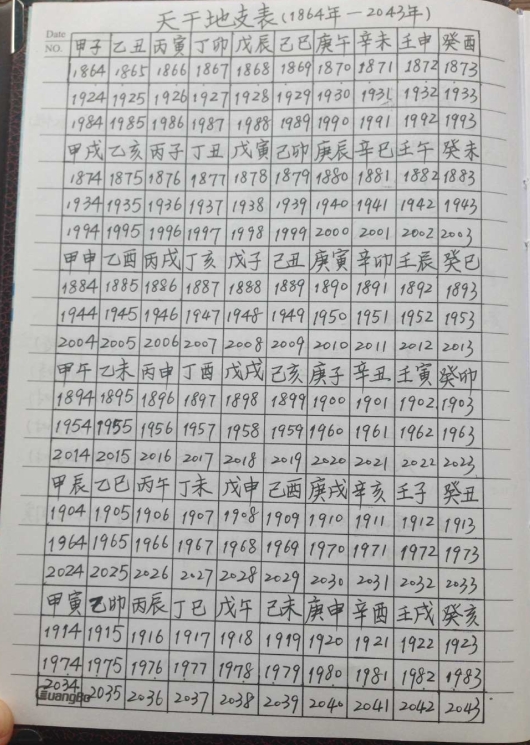 天干地支表(1864年—2043年)
Date
NO.
甲子 乙丑 丙寅 丁卯 戊辰 己巳 庚午 辛未 壬申 癸酉
1864 1865 1866 1867 1868 1869 1870 1871 1872 1873
1924 1925 1926 1927 1928 1929 1930 1931 1932 1933
1984 1985 1986 1987 1988 1989 1990 1991 1992 1993
甲戌 乙亥 丙子 丁丑 戊寅 己卯 庚辰 辛巳 壬午 癸未
1874 1875 1876 1877 1878 1879 1880 1881 1882 1883
1934 1935 1936 1937 1938 1939 1940 1941 1942 1943
1994 1995 1996 1997 1998 1999 2000 2001 2002 2003
甲申 乙酉 丙戌 丁亥 戊子 己丑 庚寅 辛卯 壬辰 癸巳
1884 1885 1886 1887 1888 1889 1890 1891 1892 1893
1944 1945 1946 1947 1948 1949 1950 1951 1952 1953
2004 2005 2006 2007 2008 2009 2010 2011 2012 2013
甲午 乙未 丙申 丁酉 戊戌 己亥 庚子 辛丑 壬寅 癸卯
1894 1895 1896 1897 1898 1899 1900 1901 1902 1903
1954 1955 1956 1957 1958 1959 1960 1961 1962 1963
2014 2015 2016 2017 2018 2019 2020 2021 2022 2023
甲辰 乙巳 丙午 丁未 戊申 己酉 庚戌 辛亥 壬子 癸丑
1904 1905 1906 1907 1908 1909 1910 1911 1912 1913
1964 1965 1966 1967 1968 1969 1970 1971 1972 1973
2024 2025 2026 2027 2028 2029 2030 2031 2032 2033
甲寅 乙卯 丙辰 丁巳 戊午 己未 庚申 辛酉 壬戌 癸亥
1914 1915 1916 1917 1918 1919 1920 1921 1922 1923
1974 1975 1976 1977 1978 1979 1980 1981 1982 1983
2034 2035 2036 2037 2038 2039 2040 2041 2042 2043
GuangBo